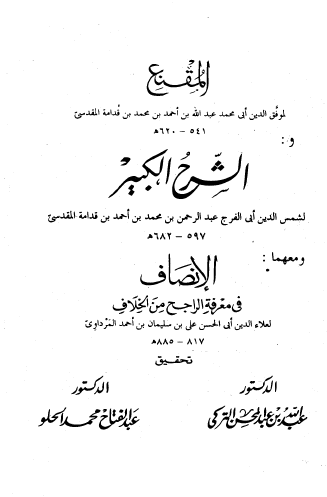 المقنع
لموفق الدين أبى محمد عبد الله بن أحمد بن محمد بن قدامة المقدسىّ
٥٤١ - ٦٢٠هـ
و :
الشرح الكبير
لشمس الدين أبى الفرج عبد الرحمن بن محمد بن أحمد بن قدامة المقدسىّ
٥٩٧ - ٦٨٢هـ
ومعهما :
الإنصاف
فى معرفة الراجح من الخلاف
لعلاء الدين أبى الحسن على بن سليمان بن أحمد المَرْداوىّ
٨١٧ - ٨٨٥هـ
تحقيق
الدكتور الدكتور
عبد الله بن عبد المحسن التركى عبد الفتاح محمد الحلو